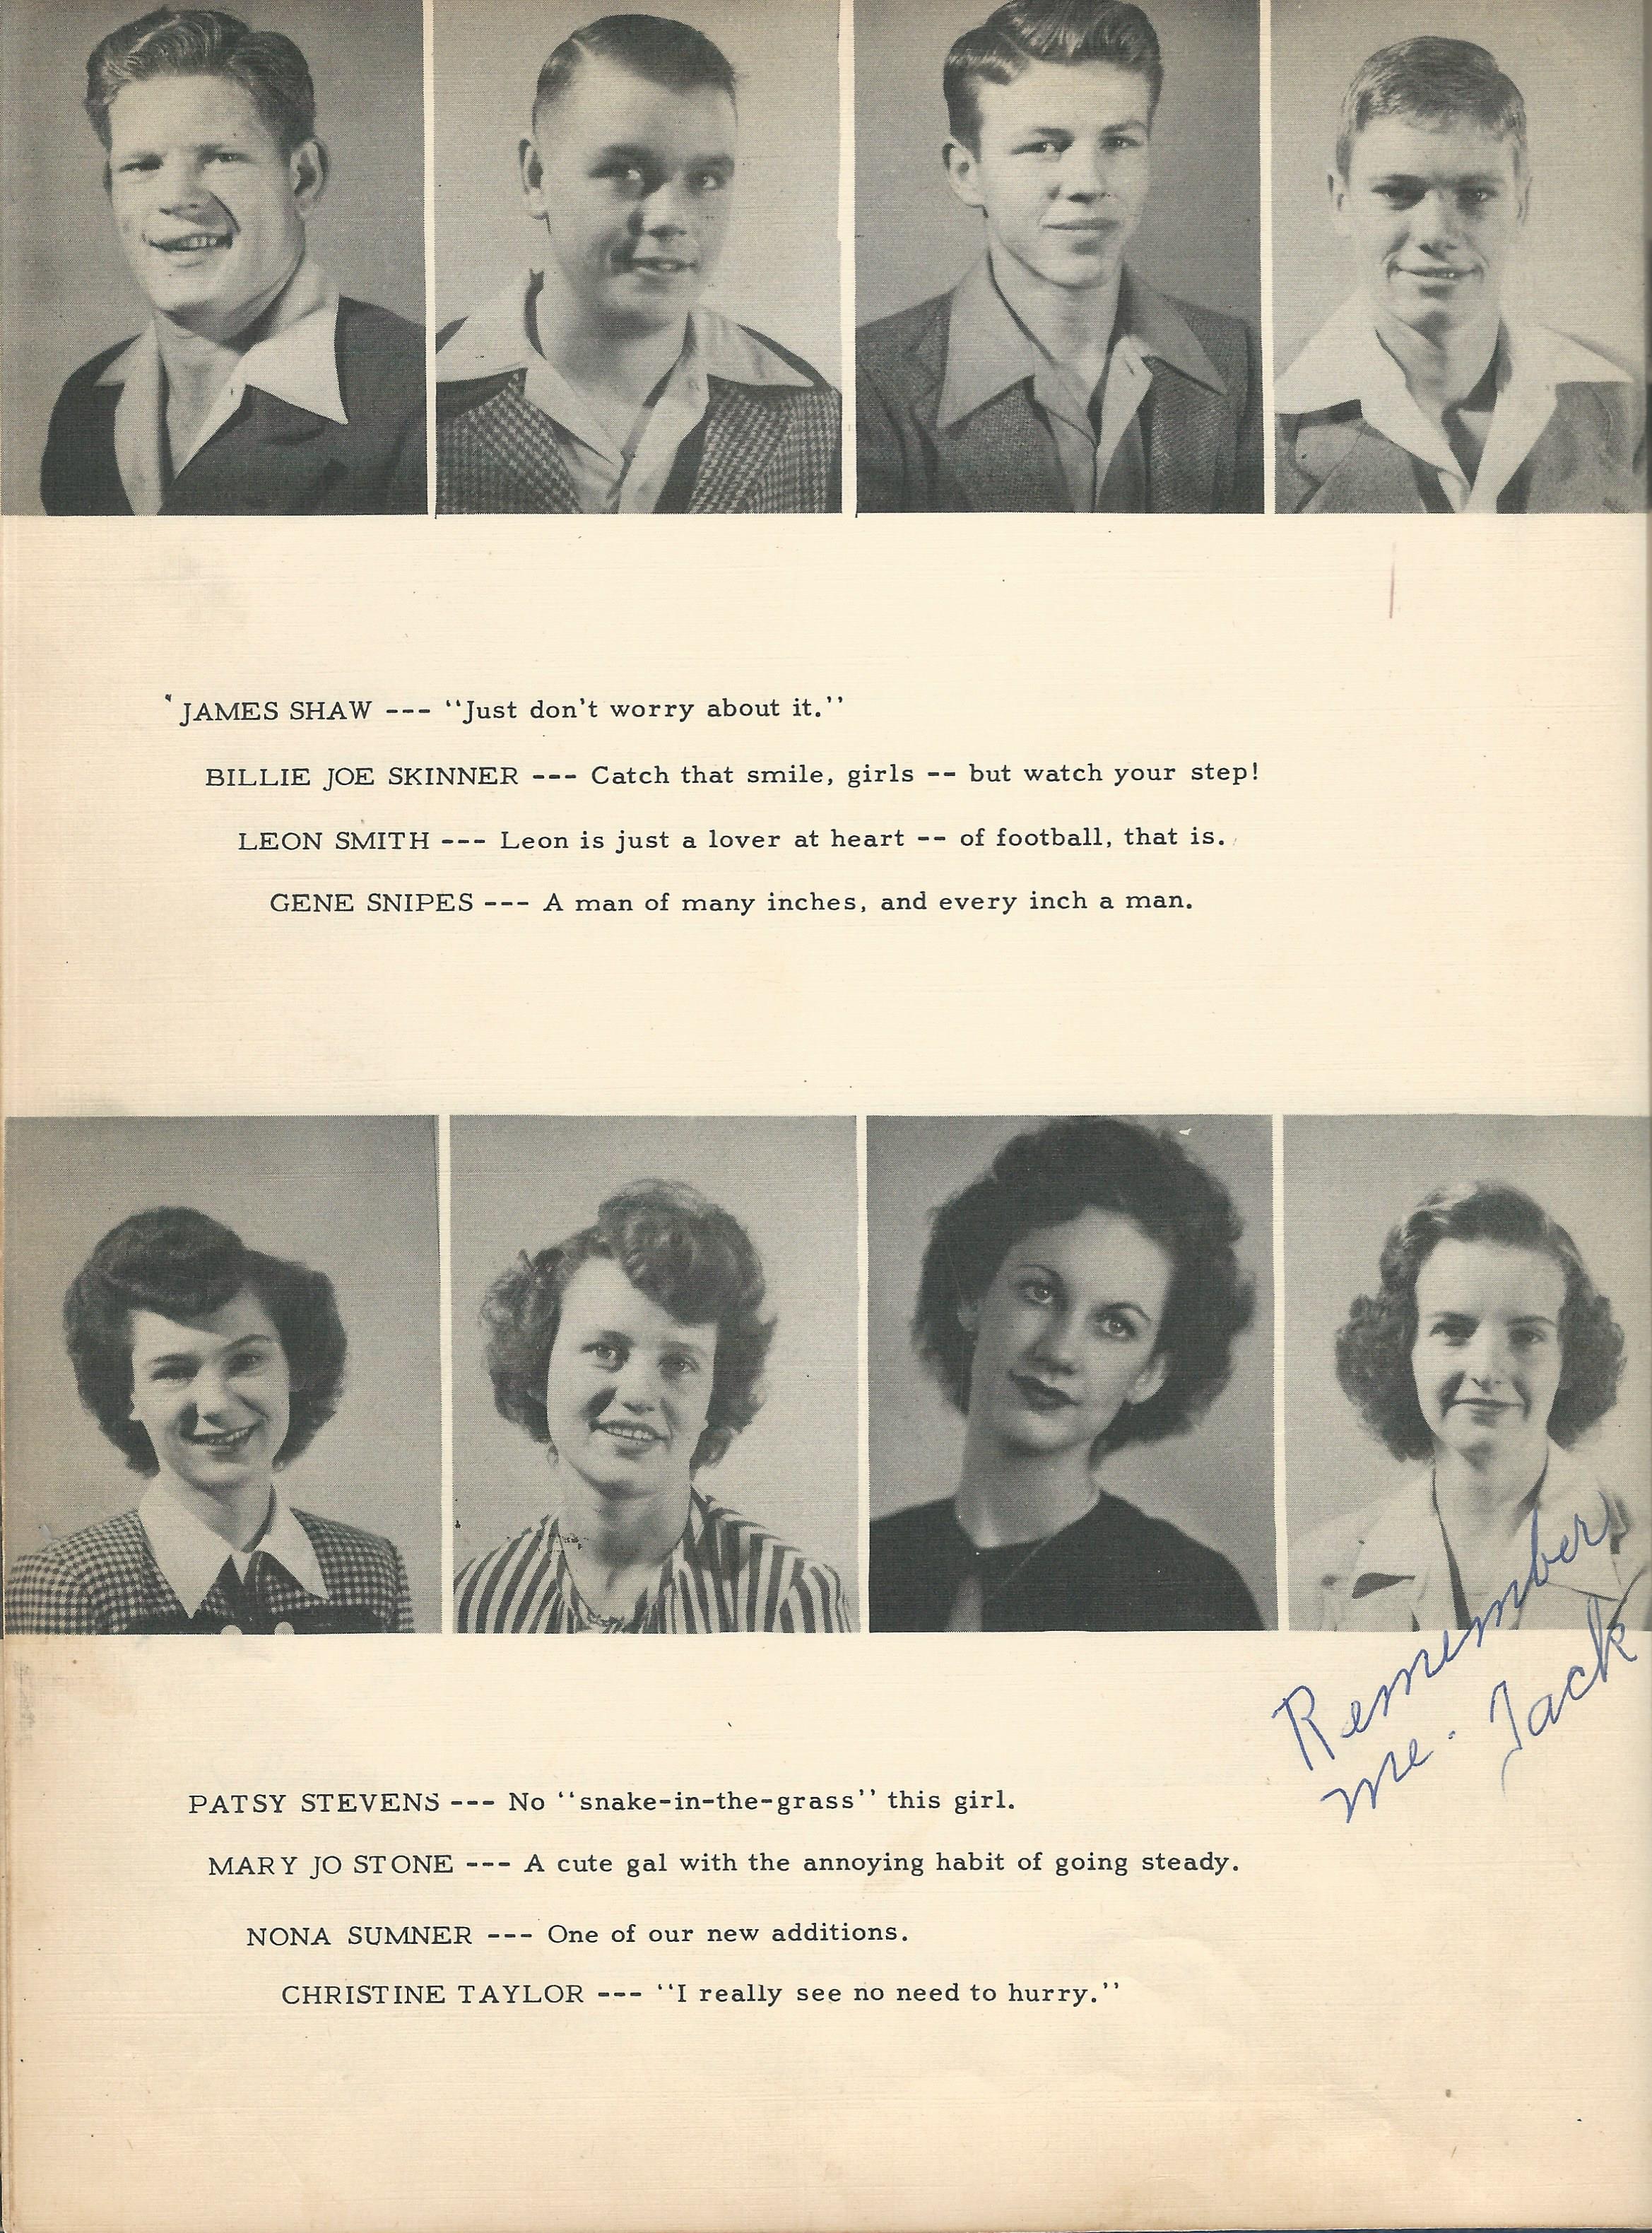 JAMES SHAW --- "Just don't worry about it."
BILLIE JOE SKINNER --- Catch that smile, girls -- but watch your step!
LEON SMITH --- Leon is just a lover at heart -- of football, that is.
GENE SNIPES --- A man of many inches, and every inch a man.
Remember
me. Jack
PATSY STEVENS --- No "snake-in-the-grass" this girl.
MARY JO STONE --- A cute gal with the annoying habit of going steady.
NONA SUMNER --- One of our new additions.
CHRISTINE TAYLOR --- "I really see no need to hurry."